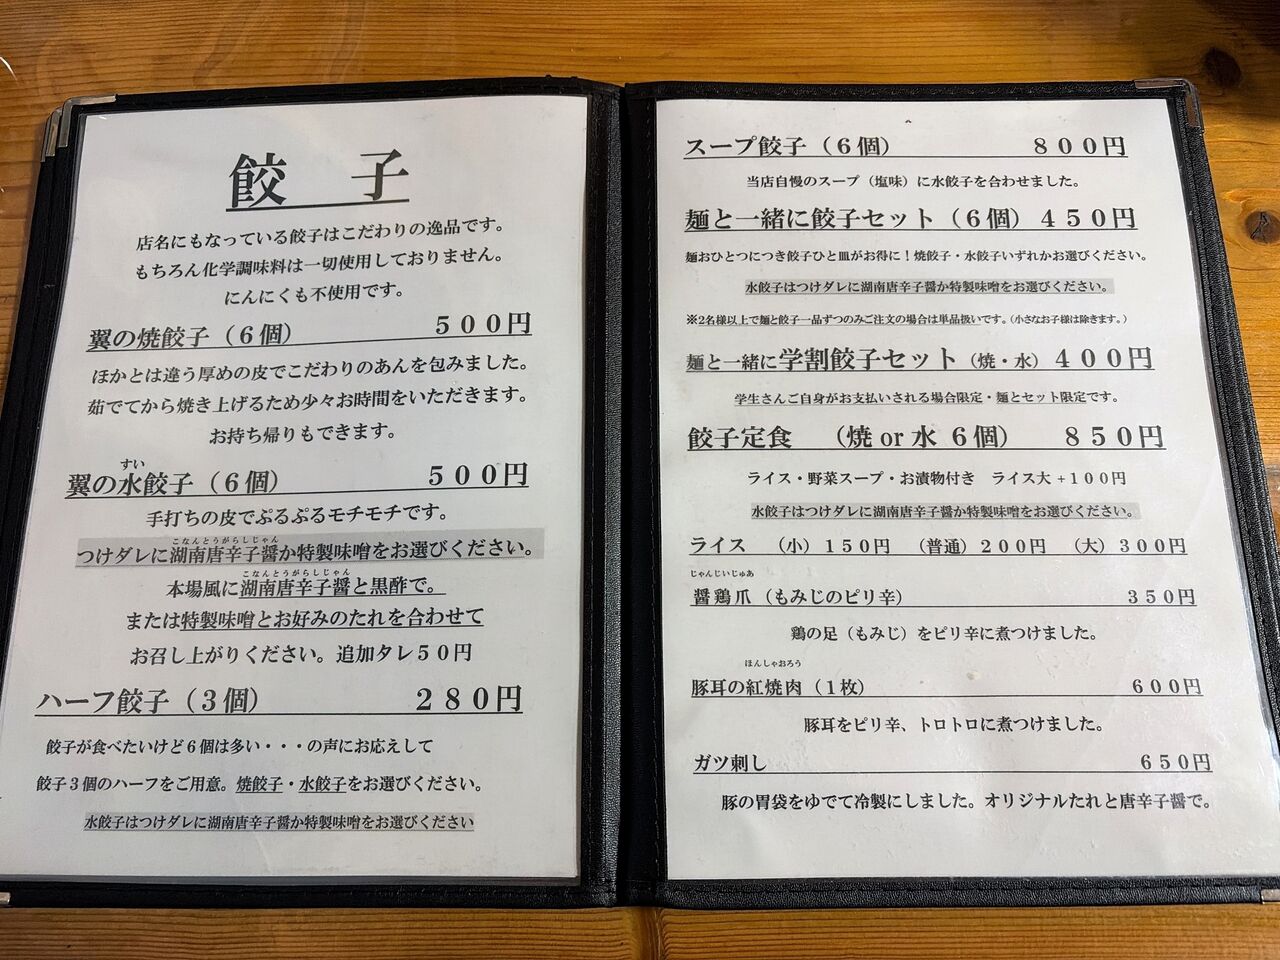 餃 子
店名にもなっている餃子はこだわりの逸品です。
もちろん化学調味料は一切使用しておりません。
にんにくも不使用です。
翼の焼餃子（６個） ５００円
ほかとは違う厚めの皮でこだわりのあんを包みました。
茹でてから焼き上げるため少々お時間をいただきます。
お持ち帰りもできます。
すい
翼の水餃子（６個） ５００円
手打ちの皮でぷるぷるモチモチです。
こなんとうがらしじゃん
つけダレに湖南唐辛子醤か特製味噌をお選びください。
こなんとうがらしじゃん
本場風に湖南唐辛子醤と黒酢で。
または特製味噌とお好みのたれを合わせて
お召し上がりください。追加タレ５０円
ハーフ餃子（３個） ２８０円
餃子が食べたいけど６個は多い・・・の声にお応えして
餃子３個のハーフをご用意。焼餃子・水餃子をお選びください。
水餃子はつけダレに湖南唐辛子醤か特製味噌をお選びください
スープ餃子（６個） ８００円
当店自慢のスープ（塩味）に水餃子を合わせました。
麺と一緒に餃子セット（６個）４５０円
麺おひとつにつき餃子ひと皿がお得に！焼餃子・水餃子いずれかお選びください。
水餃子はつけダレに湖南唐辛子醤か特製味噌をお選びください。
※2名様以上で麺と餃子一品ずつのみご注文の場合は単品扱いです。（小さなお子様は除きます。）
麺と一緒に学割餃子セット（焼・水）４００円
学生さんご自身がお支払いされる場合限定・麺とセット限定です。
餃子定食 （焼 or 水 ６個） ８５０円
ライス・野菜スープ・お漬物付き ライス大 +１００円
水餃子はつけダレに湖南唐辛子醤か特製味噌をお選びください。
ライス （小）１５０円 （普通）２００円 （大）３００円
じゃんじいじゅあ
醤鶏爪（もみじのピリ辛） ３５０円
鶏の足（もみじ）をピリ辛に煮つけました。
ほんしゃおろう
豚耳の紅焼肉（１枚） ６００円
豚耳をピリ辛、トロトロに煮つけました。
ガツ刺し ６５０円
豚の胃袋をゆでて冷製にしました。オリジナルたれと唐辛子醤で。